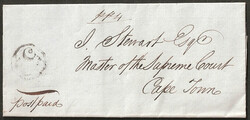 J. Stewart Esqr
Master of the Supreme Court
Cape Town
Postpaid